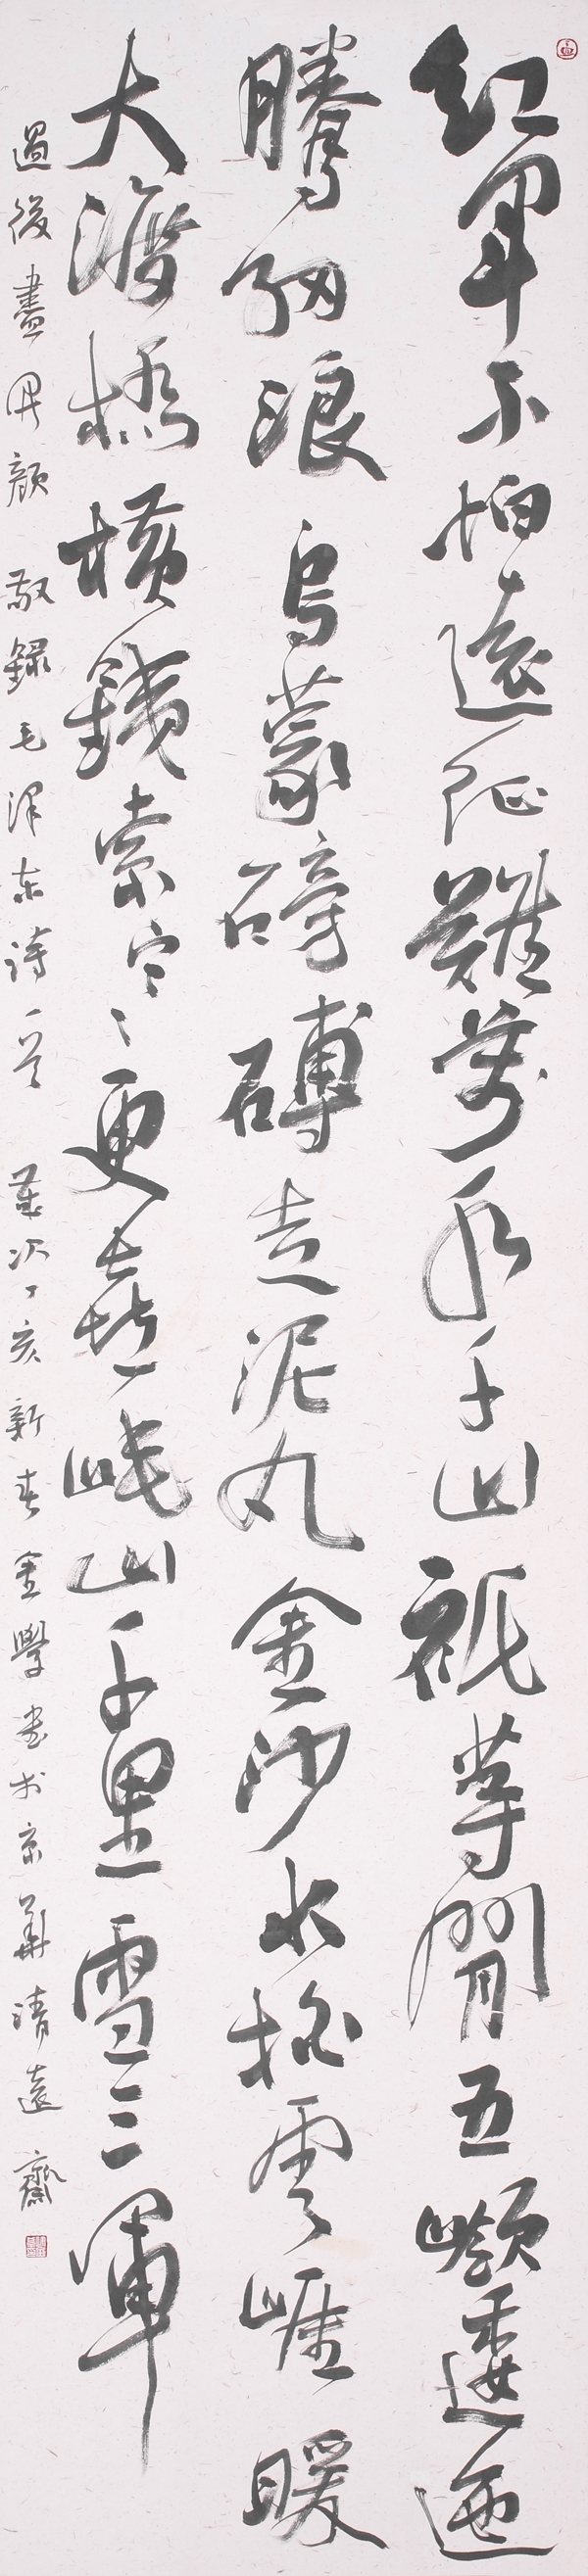 紅軍不怕遠征難萬水千山祇等閒五嶺逶迤
騰細浪烏蒙磅礴走泥丸金沙水拍雲崖暖
大渡橋橫鐵索寒更喜岷山千里雪三軍
過後盡開顏敬錄毛澤東詩一首歲次丁亥新春金學書於京華清遠齋